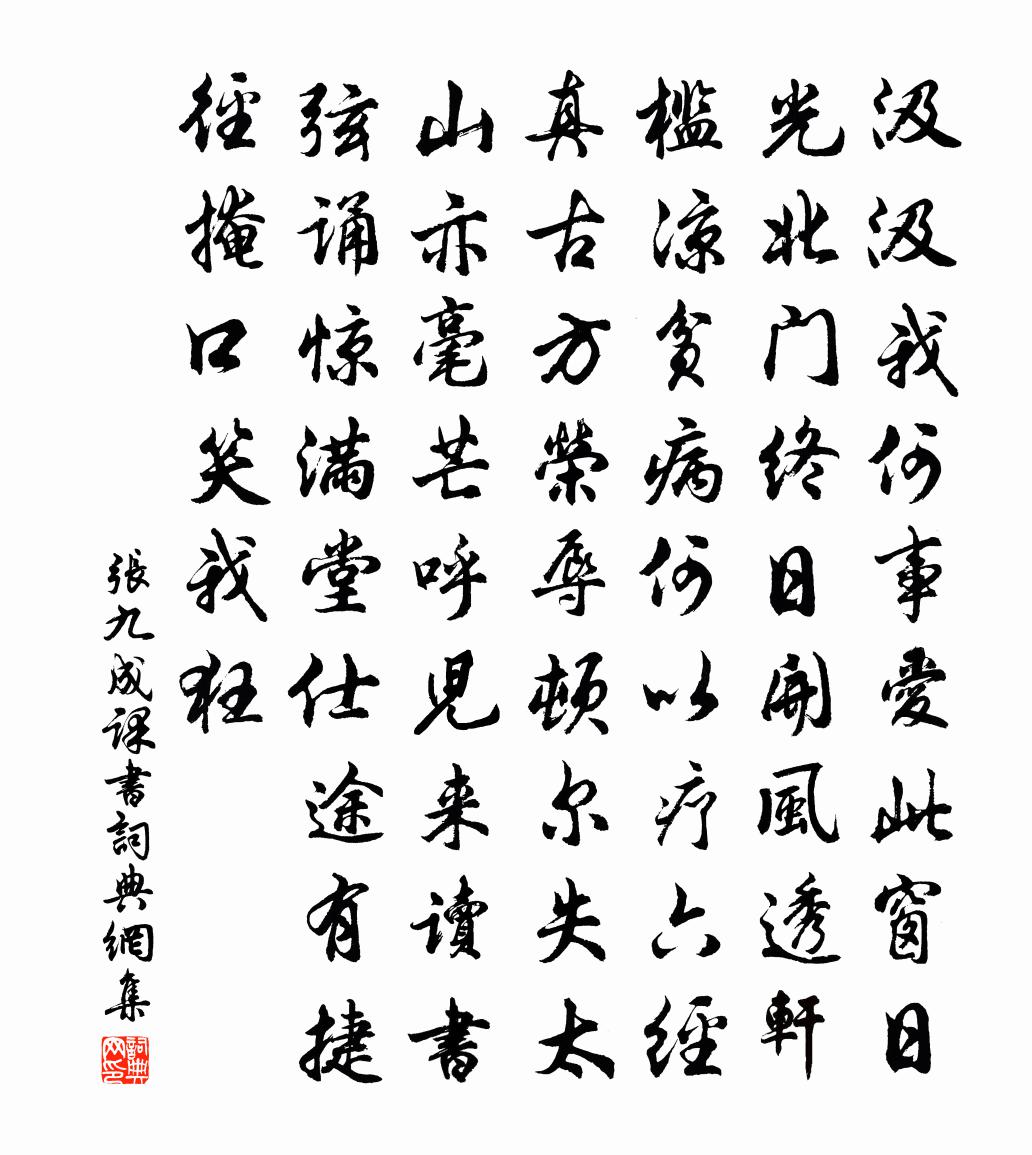 汲汲我何事愛此窗日
光北门终日開風透軒
檻凉貧病何以疗六經
真古方榮辱頓尔失太
山亦毫芒呼児来读書
弦诵惊满堂仕途有捷
径掩口笑我狂
張九成课書詞典網集
詞典网印